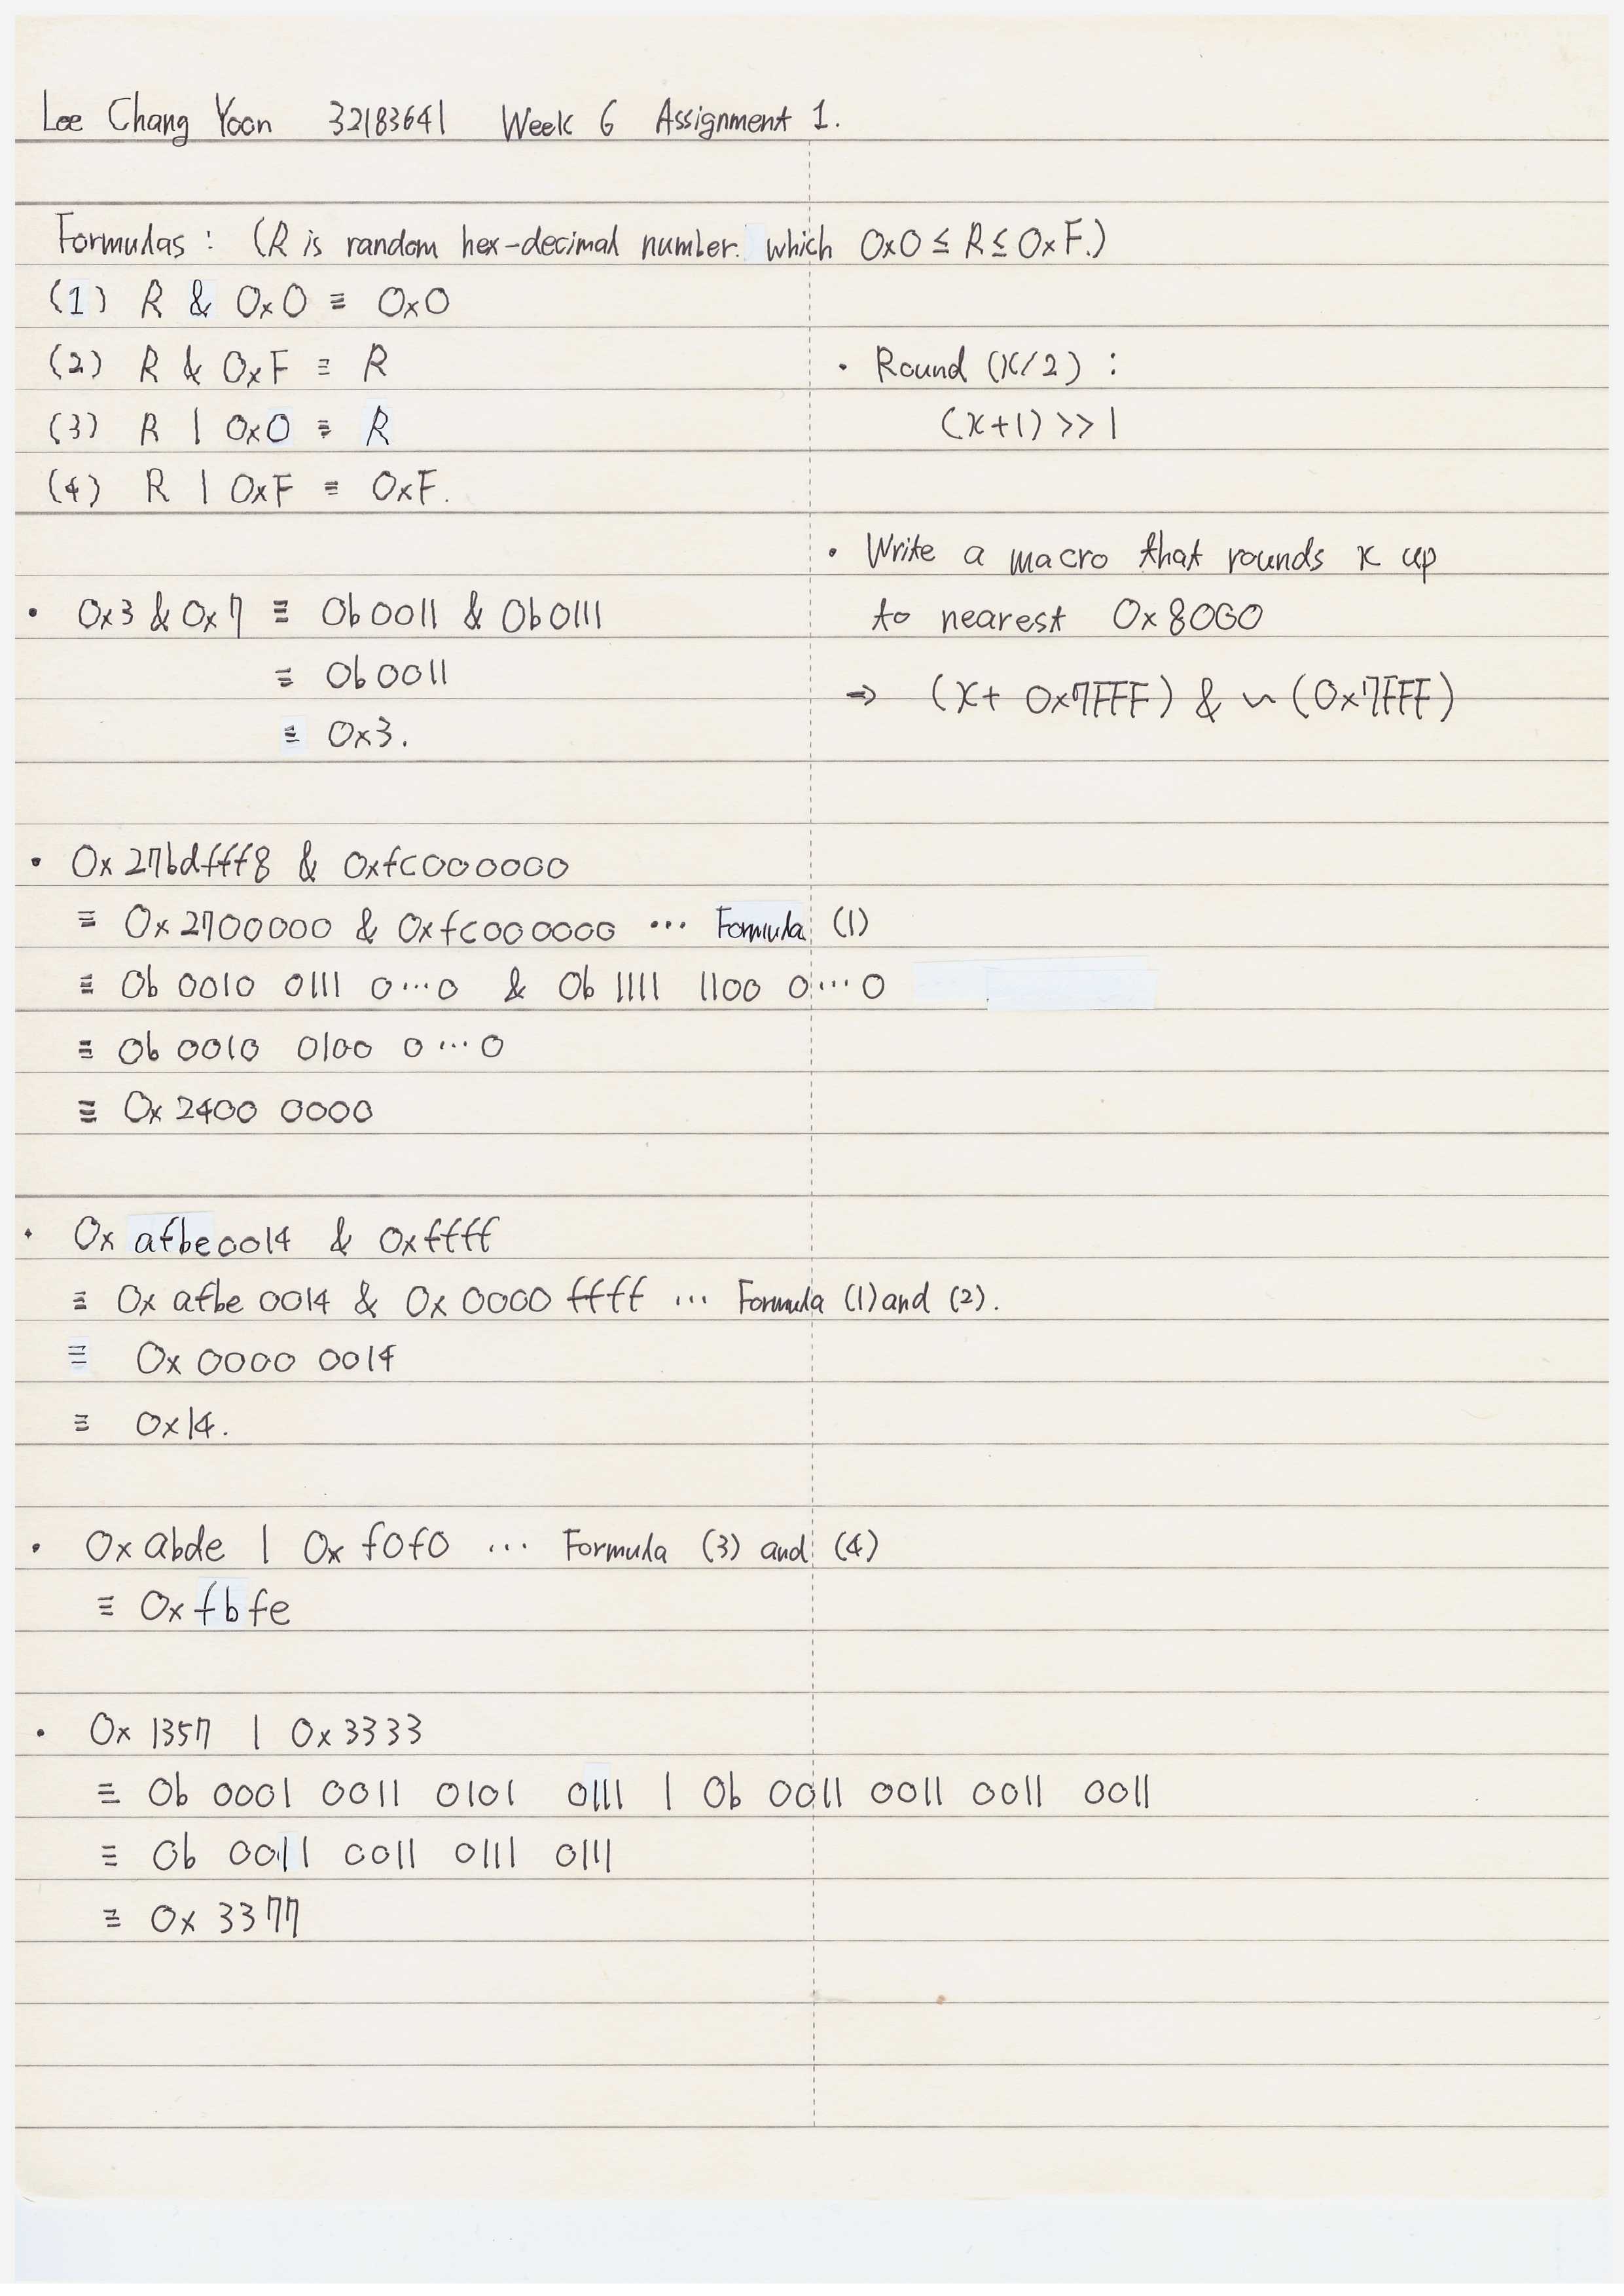 Lee Chang Yoon 32183641 Week 6 Assignment 1.
Formulas : (R is random hex-decimal number. which 0x0 ≤ R ≤ 0xF.)
(1) R & 0x0 ≡ 0x0
(2) R & 0xF ≡ R
(3) R | 0x0 ≡ R
(4) R | 0xF ≡ 0xF.
• 0x3 & 0x7 ≡ 0b0011 & 0b0111
≡ 0b0011
≡ 0x3.
• 0x27bdfff8 & 0xfc000000
≡ 0x2700000 & 0xfc000000 ... Formula (1)
≡ 0b 0010 0111 0...0 & 0b 1111 1100 0...0
≡ 0b 0010 0100 0...0
≡ 0x 2400 0000
• 0x afbe0014 & 0xffff
≡ 0x afbe 0014 & 0x 0000 ffff ... Formula (1) and (2).
≡ 0x 0000 0014
≡ 0x14.
• 0x abde | 0x f0f0 ... Formula (3) and (4)
≡ 0x fbfe
• 0x 1357 | 0x 3333
≡ 0b 0001 0011 0101 0111 | 0b 0011 0011 0011 0011
≡ 0b 0011 0011 0111 0111
≡ 0x 3377
• Round (x/2) :
(x+1) >> 1
• Write a macro that rounds x up
to nearest 0x8000
⇒ (x + 0x7FFF) & ~(0x7FFF)